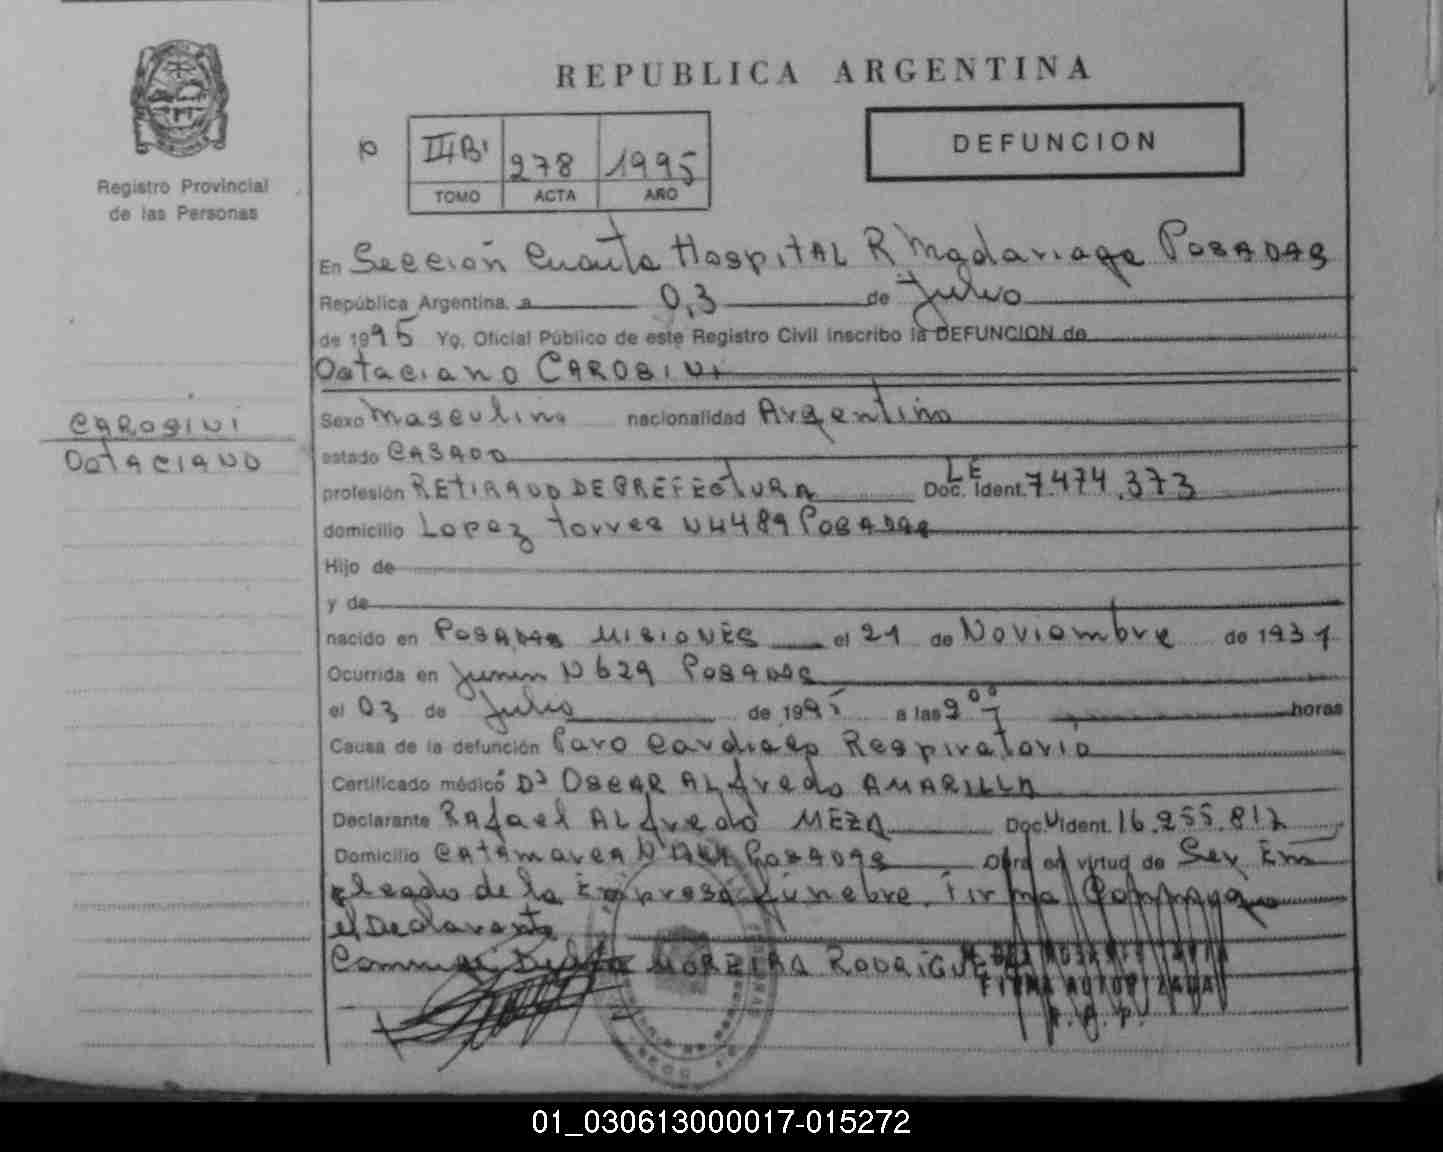 REPUBLICA ARGENTINA
DEFUNCION
278 1995
TOMO ACTA AÑO
Registro Provincial
de las Personas
En Sección Cuarta HospitAL R Madariaga POSADAS
República Argentina, a 03 de Julio
de 1995 Yo, Oficial Público de este Registro Civil inscribo la DEFUNCION de
Octaciano CAROSINI
CAROSINI
OctACIANO
Sexo masculino nacionalidad Argentino
estado CASADO
profesión RETIRADO DE PREFECTURA LE Doc. Ident. 7.474.373
domicilio Lopez torres N4489 POSADAS
Hijo de
y de
nacido en POSADAS MISIONES el 21 de Noviembre de 1931
Ocurrida en Junin N 629 POSADAS
el 03 de Julio de 1995 a las 9 00 horas
Causa de la defunción Paro Cardiaco Respiratorio
Certificado médico Dr OSCAR ALfredo AMARILLA
Declarante RAfael ALfredo MEZA Doc. Ident. 16.255.812
Domicilio CATAMARCA POSADAS Obra en virtud de Ser Em
pleado de la Empresa fúnebre. Firma Conmigo
el Declarante
MOREIRA RODRIGUEZ
FIRMA AUTORIZADA
01_030613000017-015272